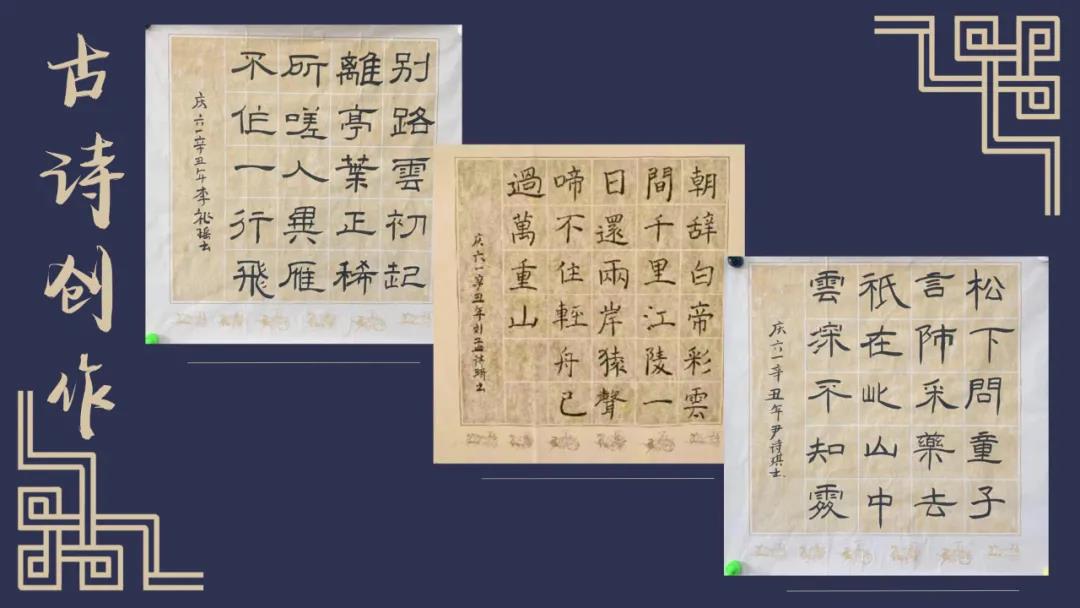 古诗创作
别路雲初起
離亭葉正稀
所嗟人異雁
不作一行飛
庆六一辛丑年李瑶书
朝辞白帝彩雲
間千里江陵一
日還兩岸猿聲
啼不住輕舟已
過萬重山
庆六一辛丑年刘孟诗书
松下問童子
言師采藥去
祇在此山中
雲深不知處
庆六一辛丑年尹诗琪书